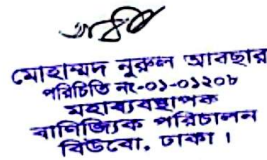 মোহাম্মদ নুরুল আবছার
পরিচিতি নং-০১-০১২০৮
মহাব্যবস্থাপক
বাণিজ্যিক পরিচালন
বিউবো, ঢাকা।